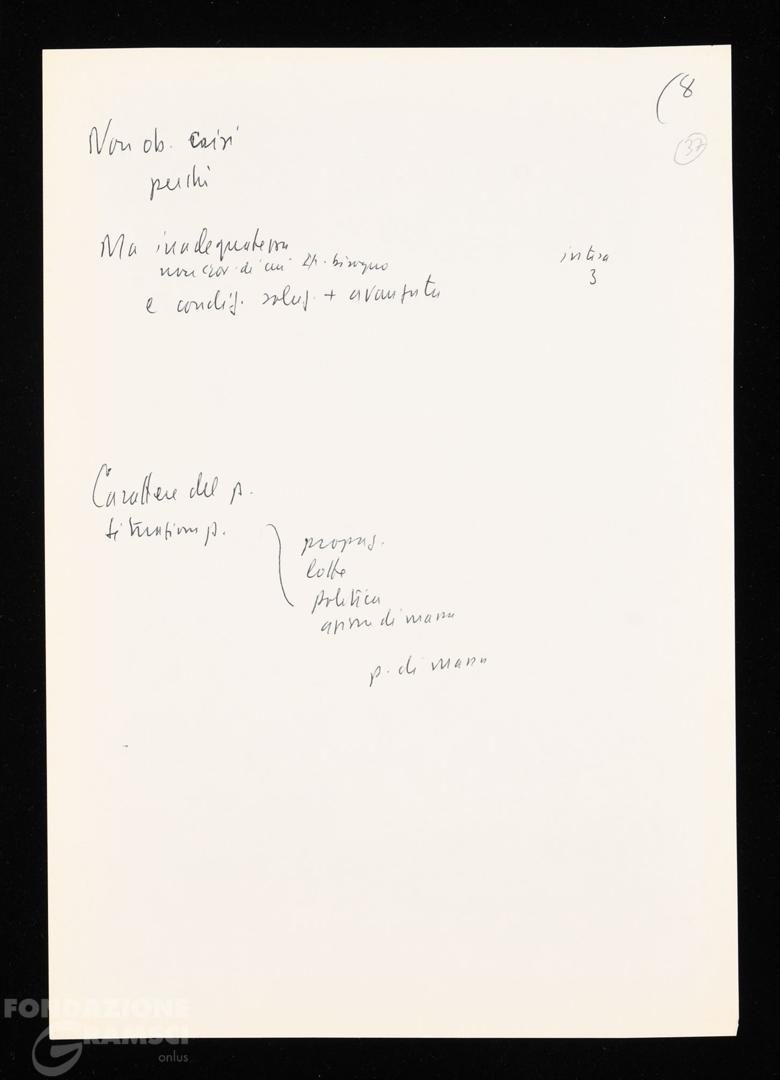 (8
37
Non ob. crisi
perchi
Ma inadequatezza
non cor. di cui bisogno
intesa
3
e condiz. soluz. + avanzata
Carattere del p.
situazione p.
propag.
lotte
politica
azione di massa
p. di massa
FONDAZIONE
GRAMSCI
onlus